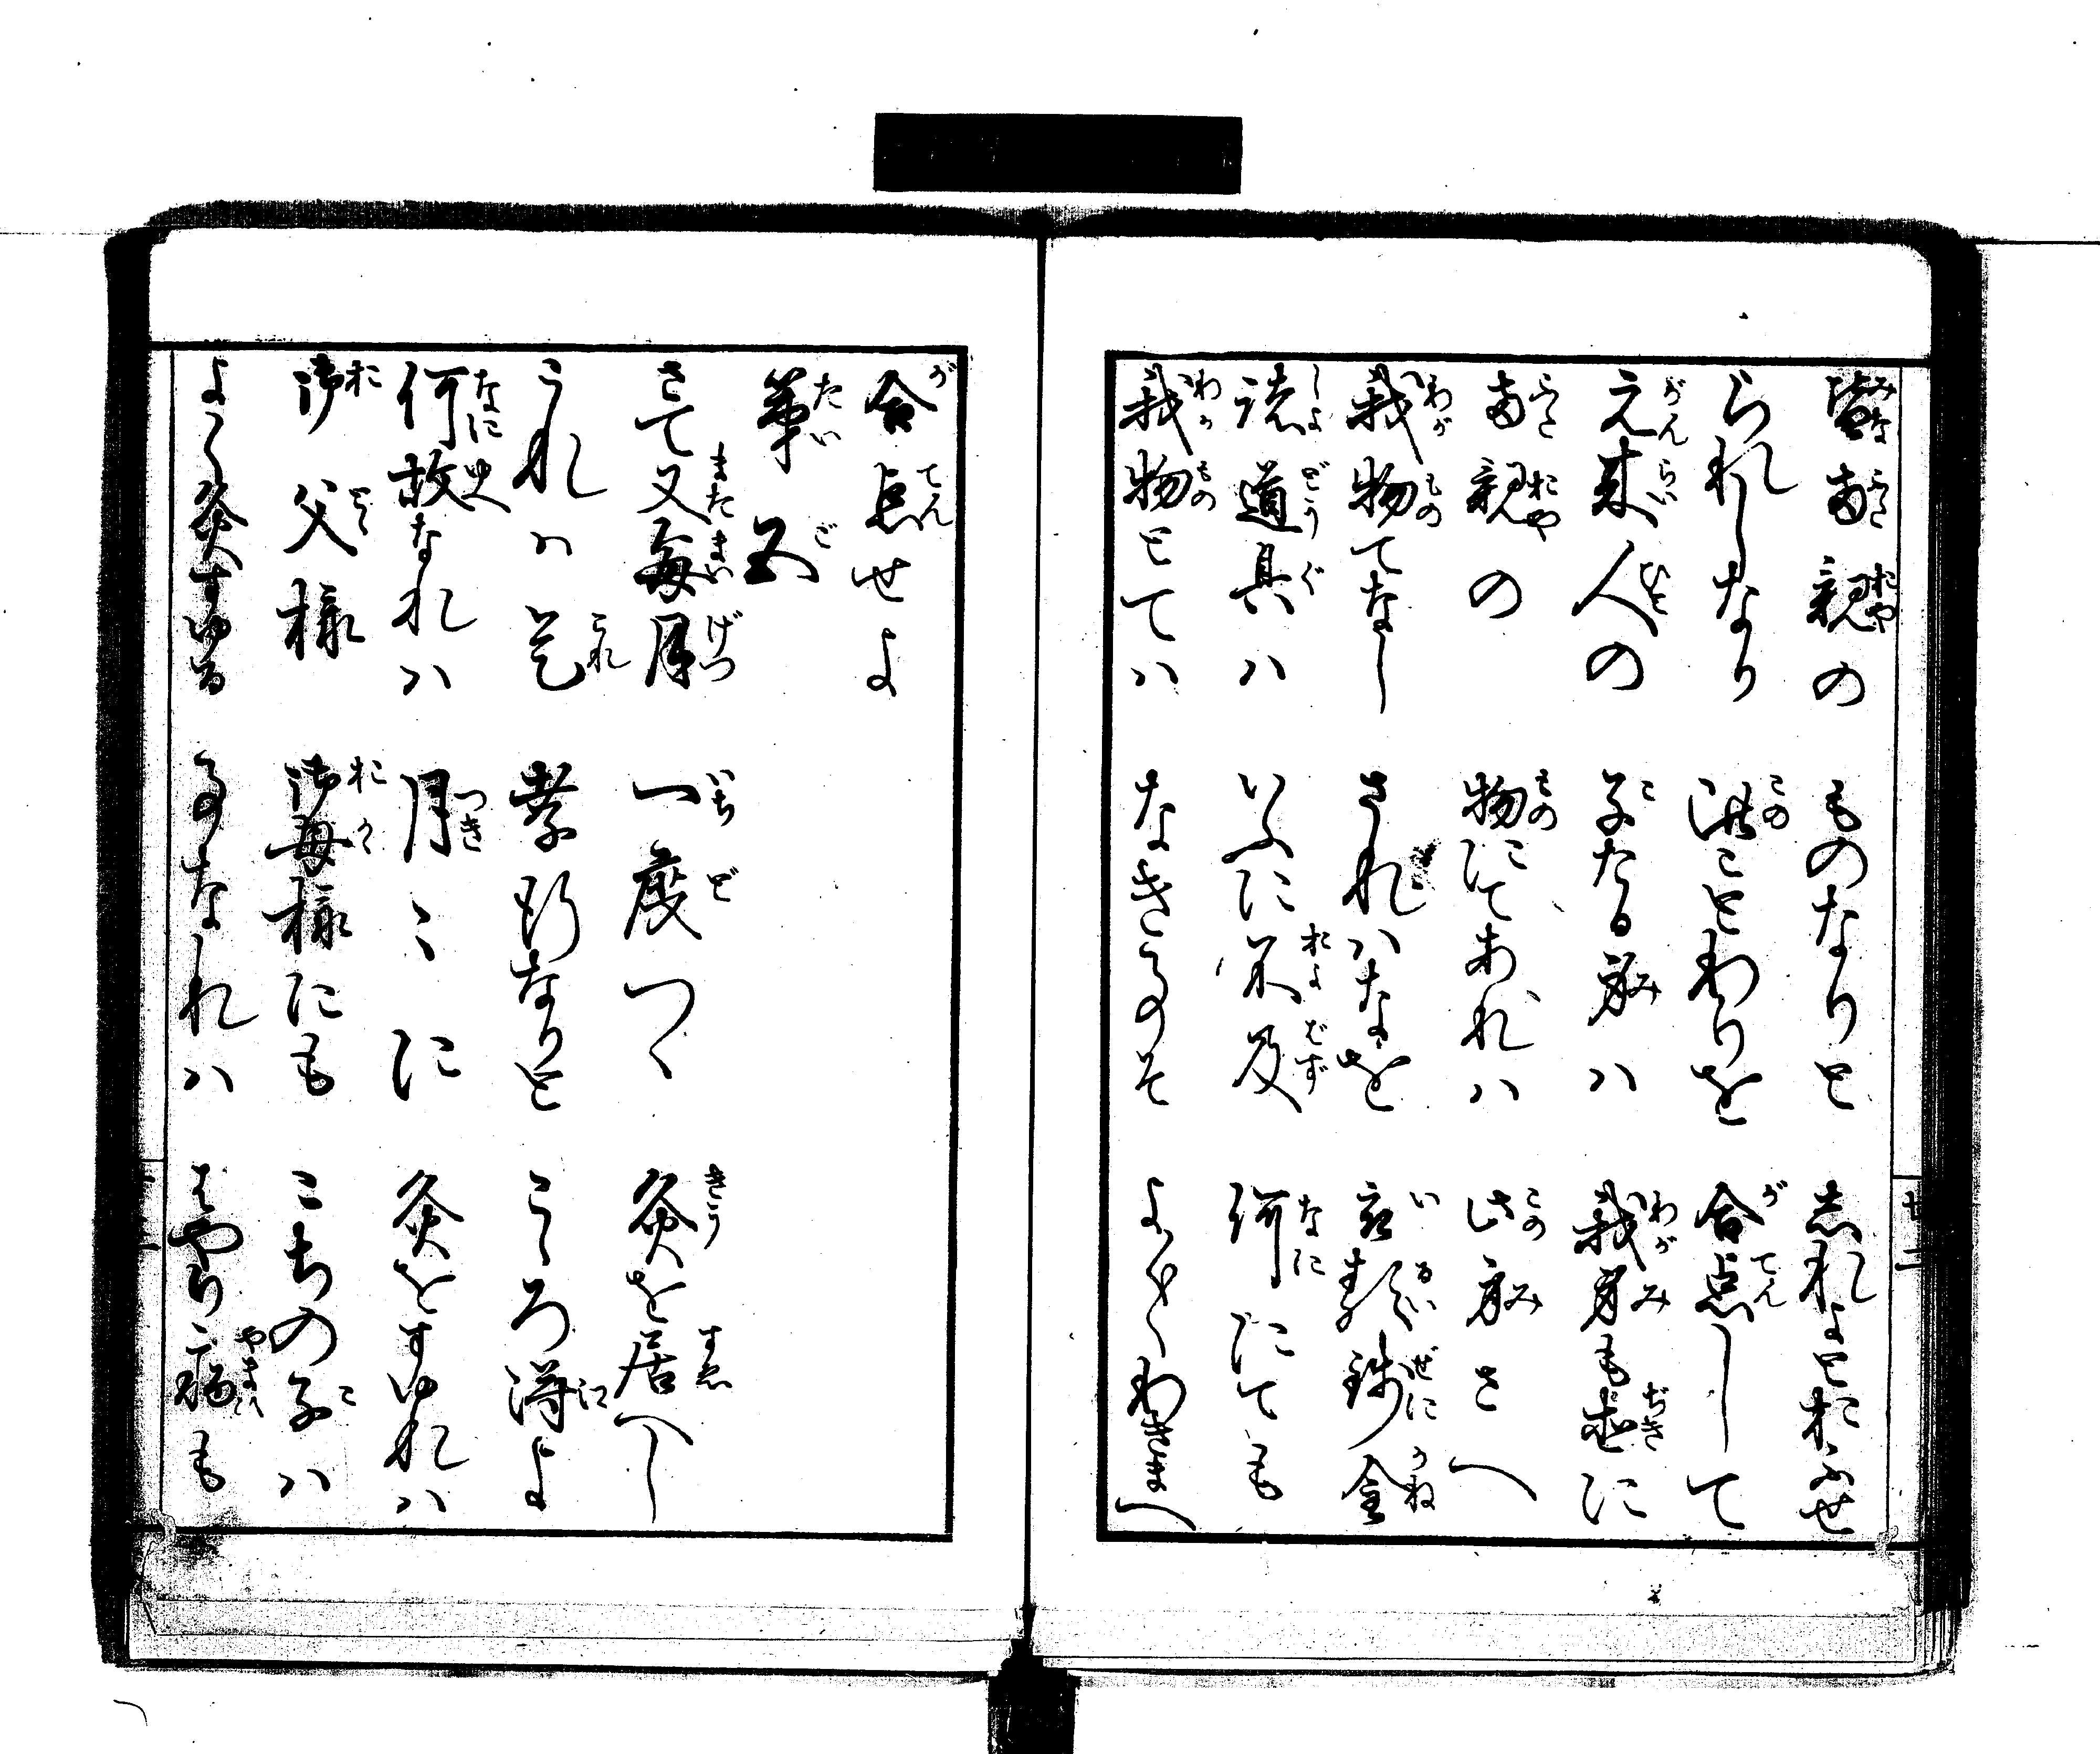 皆両親の ものなりと しれよとおふせ
られしなり 此ことわりを 合点して
元来人の 子たる身ハ 我身も直に
両親の 物にてあれハ 此身さへ
我物てなし されハなを 衣類銭金
諸道具ハ いふに不及 何にても
我物とてハ なき事そ よくよくわきまへ
廿二
合点せよ
第五
さて又毎月 一度つゝ 灸を居へし
これハ是 孝行なりと こゝろ得よ
何故なれハ 月〻に 灸をすゆれハ
御父様 御母様にも こちの子ハ
よく灸すゆる 事なれハ はやり病も